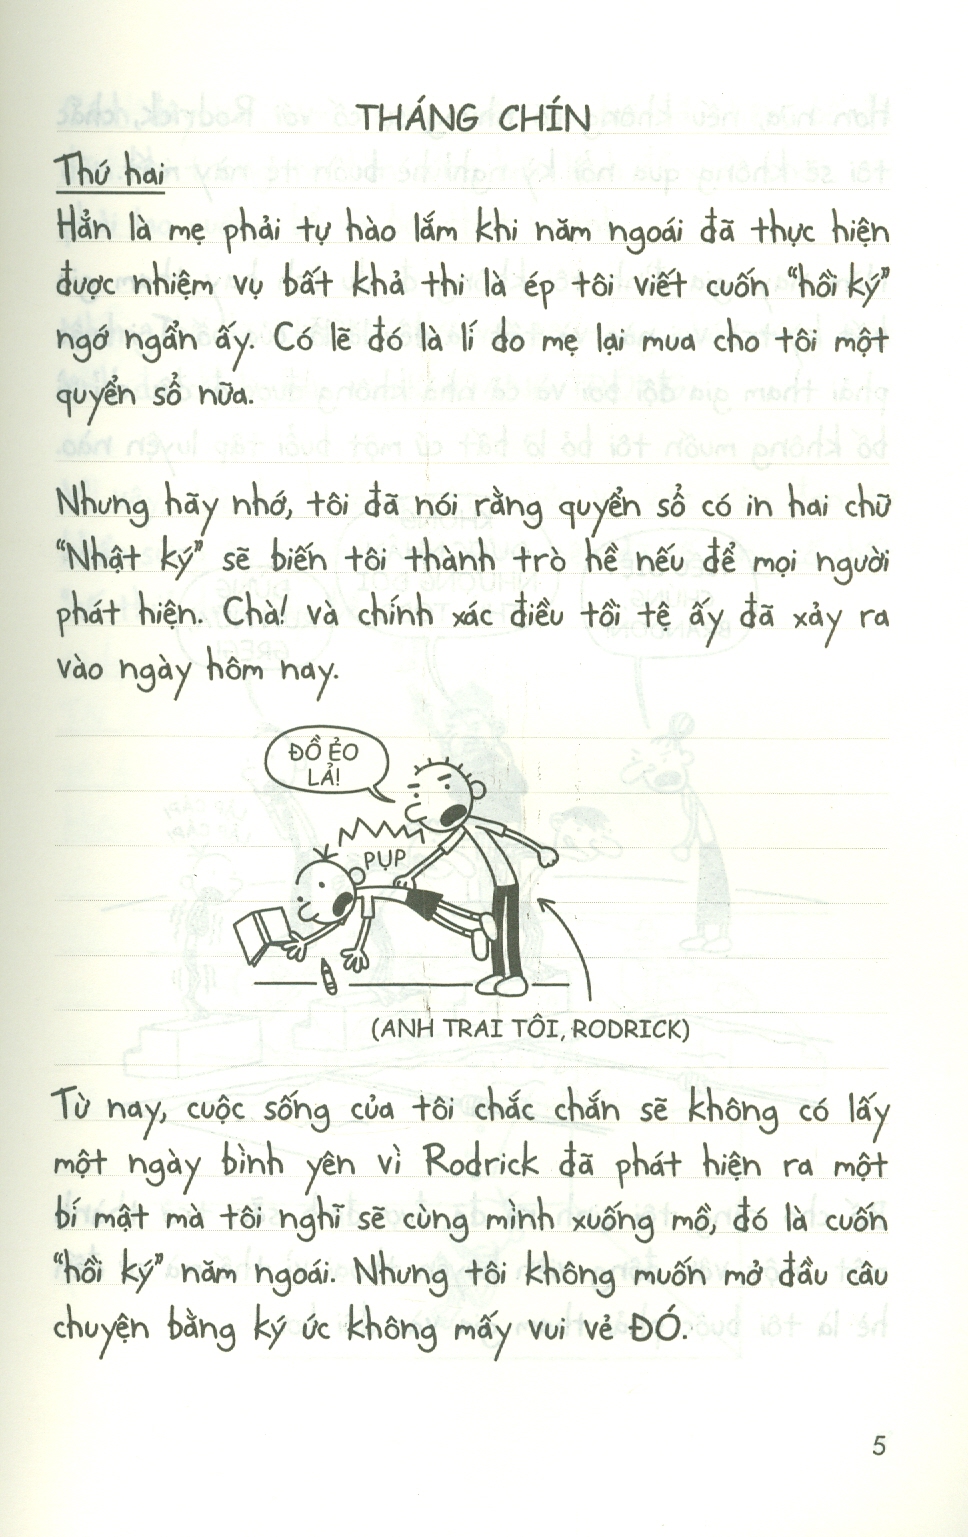 THÁNG CHÍN
Thứ hai
Hẳn là mẹ phải tự hào lắm khi năm ngoái đã thực hiện
được nhiệm vụ bất khả thi là ép tôi viết cuốn “hồi ký”
ngớ ngẩn ấy. Có lẽ đó là lí do mẹ lại mua cho tôi một
quyển sổ nữa.
Nhưng hãy nhớ, tôi đã nói rằng quyển sổ có in hai chữ
“Nhật ký” sẽ biến tôi thành trò hề nếu để mọi người
phát hiện. Chà! và chính xác điều tồi tệ ấy đã xảy ra
vào ngày hôm nay.
ĐỒ ẺO
LẢ!
PỤP
(ANH TRAI TÔI, RODRICK)
Từ nay, cuộc sống của tôi chắc chắn sẽ không có lấy
một ngày bình yên vì Rodrick đã phát hiện ra một
bí mật mà tôi nghĩ sẽ cùng mình xuống mồ, đó là cuốn
“hồi ký” năm ngoái. Nhưng tôi không muốn mở đầu câu
chuyện bằng ký ức không mấy vui vẻ ĐÓ.
5